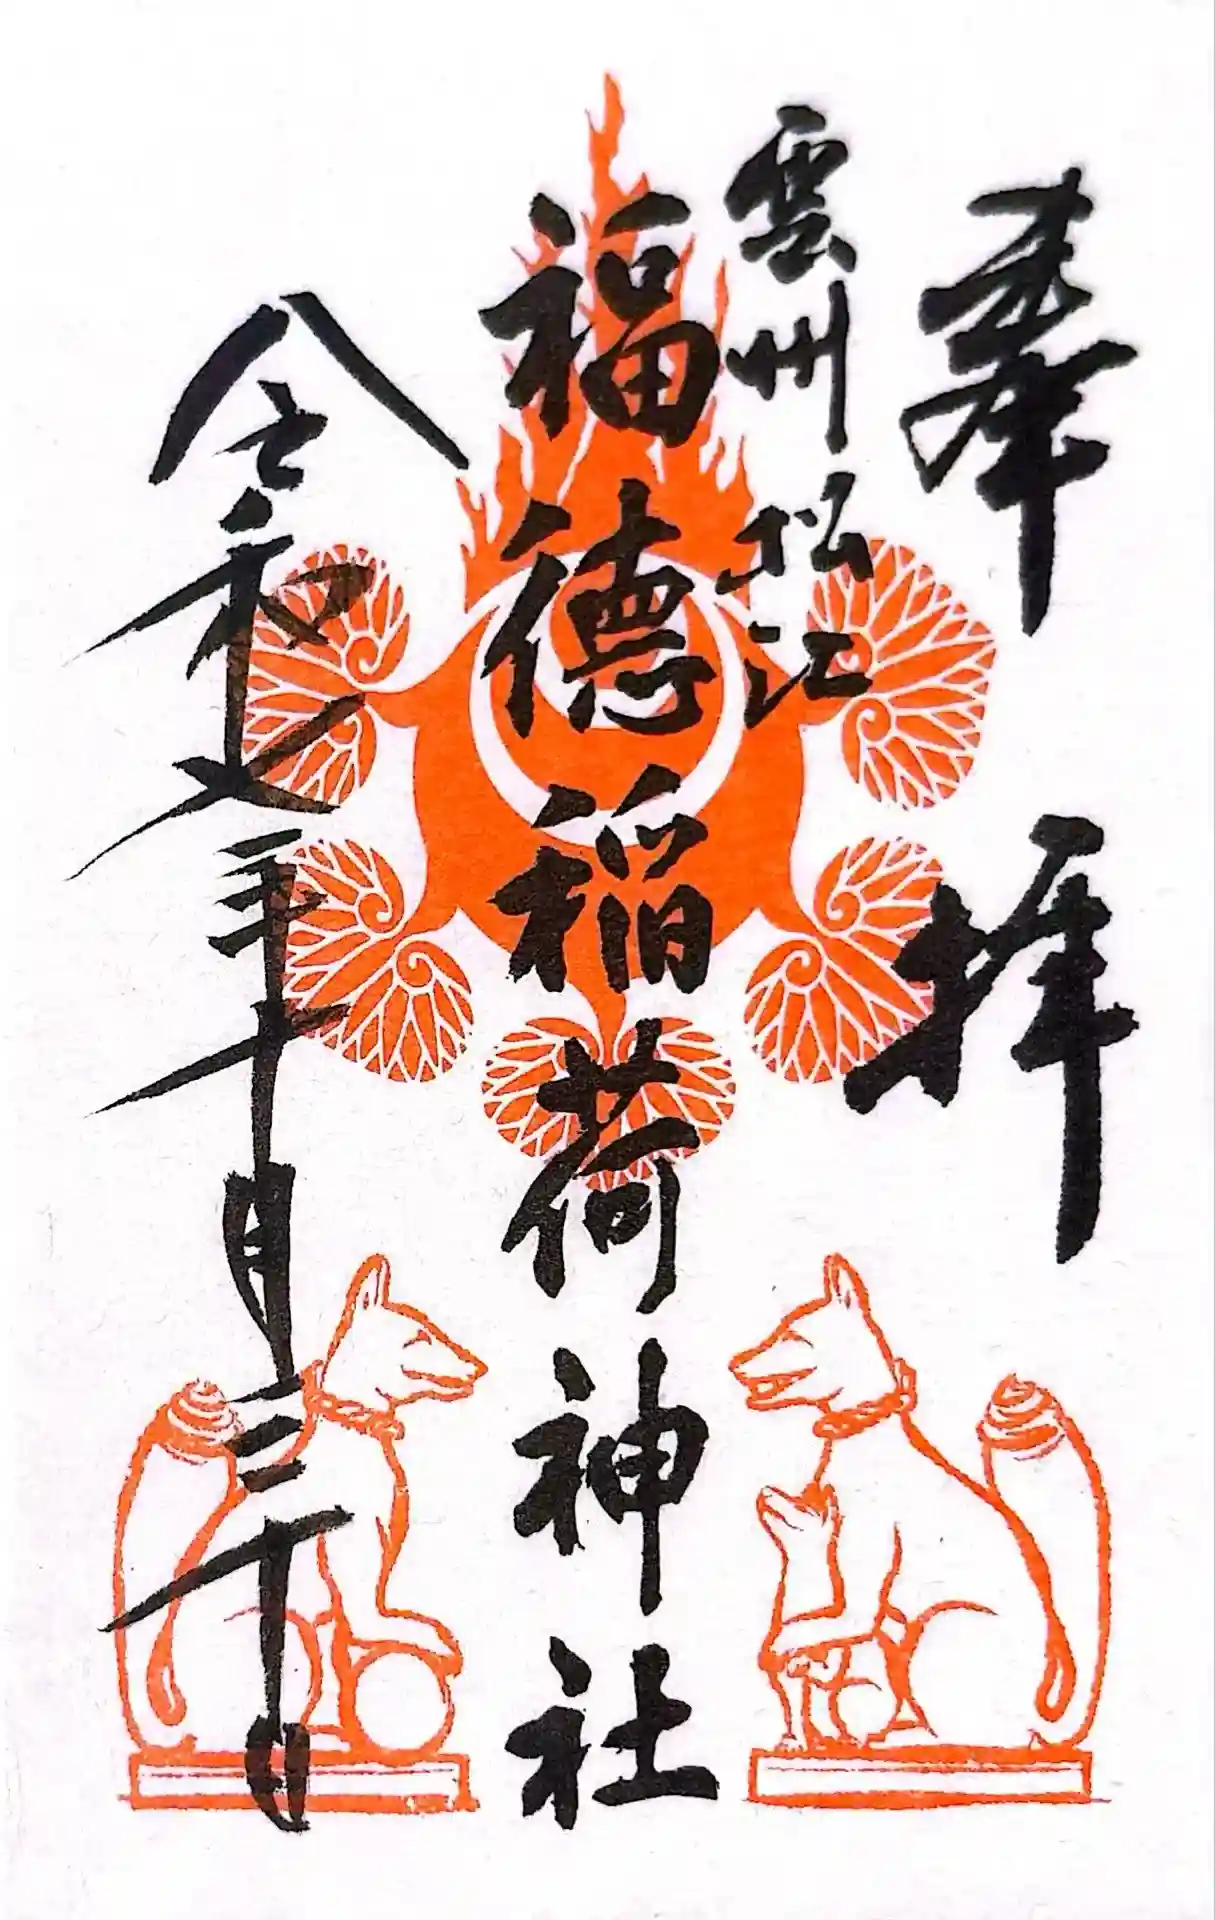 奉拝
雲州松江
福徳稲荷神社
令和七年十月三十日